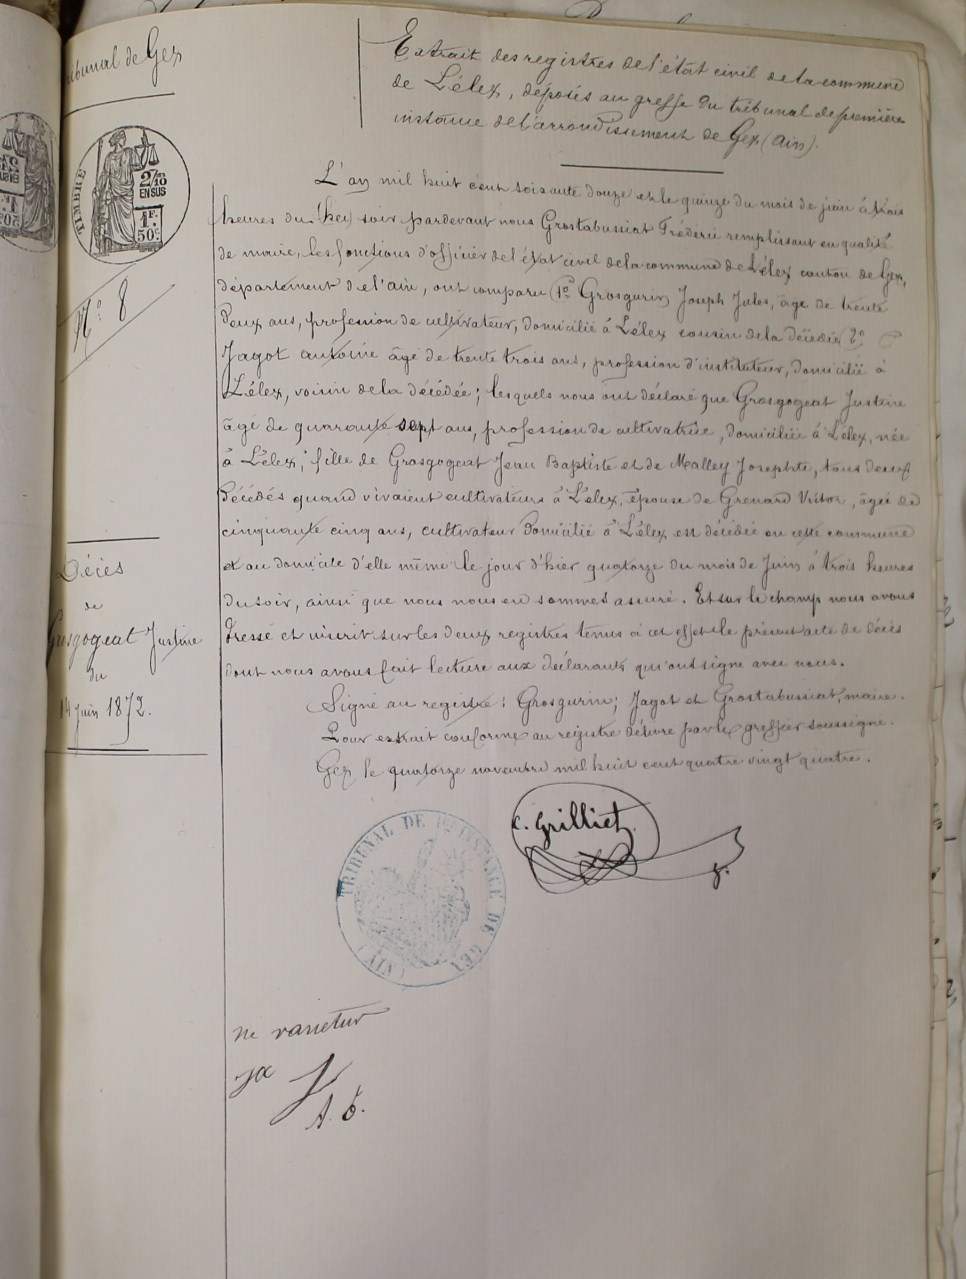 Tribunal de Gex
Extrait des registres de l'état civil de la commune
de Lélex, déposés au greffe du tribunal de première
instance de l'arrondissement de Gex (Ain).
TIMBRE
2/10
EN SUS
1 F.
50c
N° 8
L'an mil huit cent soixante douze et le quinze du mois de juin à trois
heures du soir pardevant nous Grostabussiat Fréderic remplissant en qualité
de maire, les fonctions d'officier de l'état civil de la commune de Lélex canton de Gex,
département de l'ain, ont comparu 1° Grosgurin Joseph Jules, âgé de trente
deux ans, profession de cultivateur, domicilié à Lélex cousin de la décédée 2°
Jagot antoine âgé de trente trois ans, profession d'instituteur, domicilié à
Lélex, voisin de la décédée ; lesquels nous ont déclaré que Grosgogeat Justine
âgé de quarante sept ans, profession de cultivatrice, domiciliée à Lélex, née
à Lélex, fille de Grosgogeat Jean Baptiste et de Malley Josephte, tous deux
décédés quand vivaient cultivateurs à Lélex, épouse de Grenard Victor, âgée de
cinquante cinq ans, cultivateur domicilié à Lélex est décédée en cette commune
et au domicile d'elle même le jour d'hier quatorze du mois de Juin à trois heures
du soir, ainsi que nous nous en sommes assuré. Et sur le champ nous avons
dressé et inscrit sur les deux registres tenus à cet effet le présent acte de décès
dont nous avons fait lecture aux déclarants qui ont signé avec nous.
Signé au registre : Grosgurin ; Jagot et Grostabussiat, maire.
Pour extrait conforme au registre délivré par le greffier soussigné.
Gex le quatorze novembre mil huit cent quatre vingt quatre.
Décès
de
Grosgogeat Justine
du
14 juin 1872.
C. Grilliet
TRIBUNAL DE 1re INSTANCE DE GEX
(AIN)
ne varietur